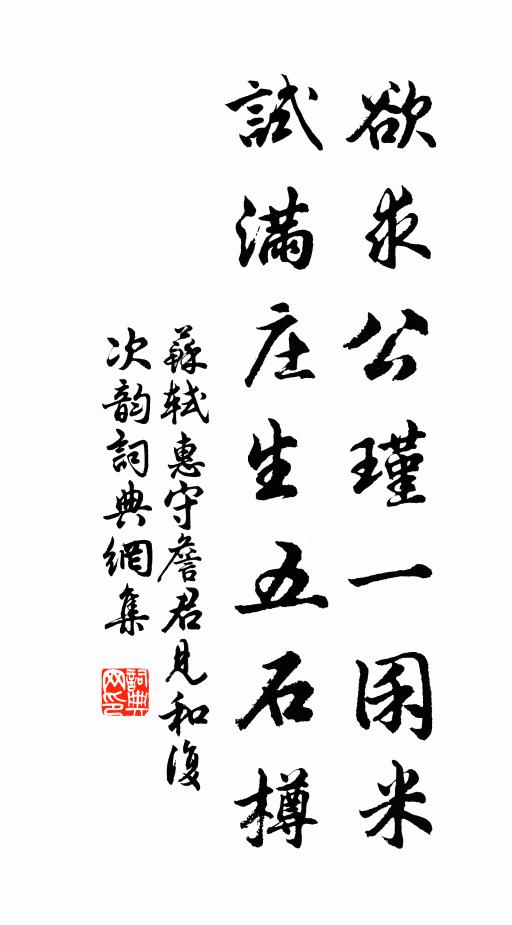 欲求公瑾一囷米
試滿庄生五石樽
蘇軾惠守詹君見和復
次韵詞典網集
詞典
网印